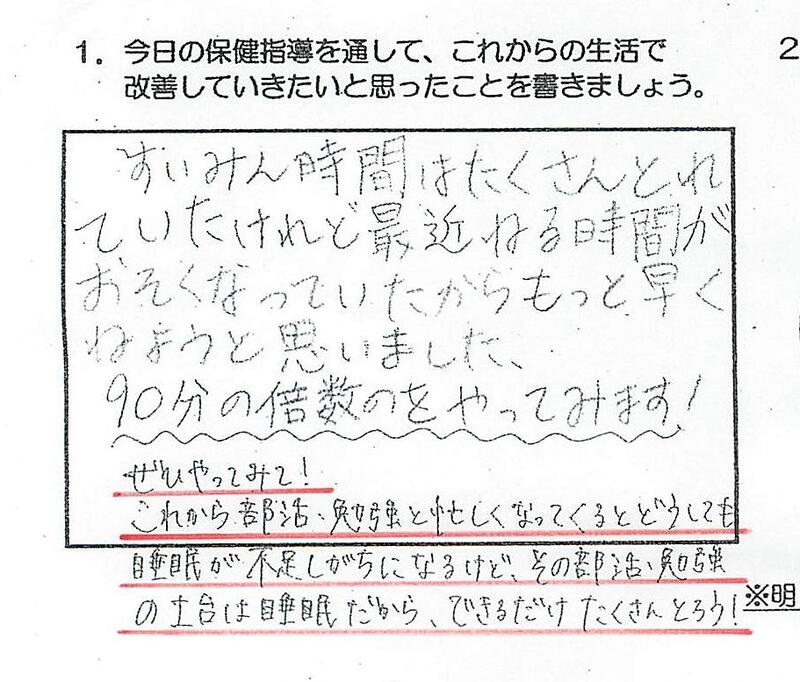 1. 今日の保健指導を通して、これからの生活で
改善していきたいと思ったことを書きましょう。
2
すいみん時間はたくさんとれ
ていたけれど最近ねる時間が
おそくなっていたからもっと早く
ねようと思いました、
90分の倍数のをやってみます!
ぜひやってみて!
これから部活・勉強と忙しくなってくるとどうしても
睡眠が不足しがちになるけど、その部活・勉強
の土台は睡眠だから、できるだけたくさんとろう!
※明